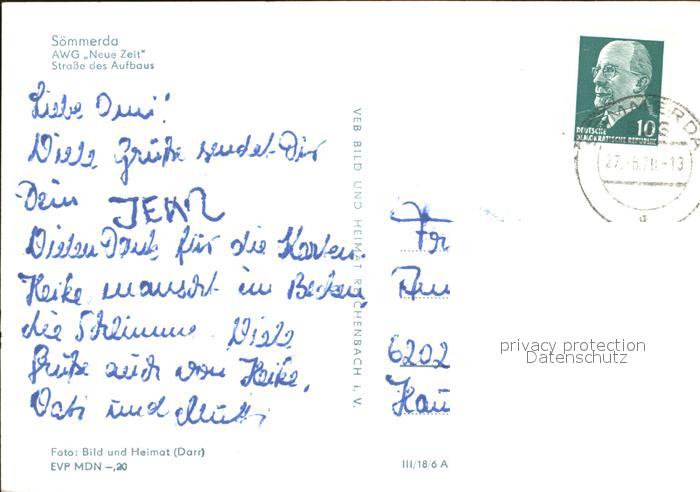 Sömmerda
AWG „Neue Zeit"
Straße des Aufbaus
Liebe Omi!
Viele Grüße sendet Dir
Dein JENS
Vielen Dank für die Karten.
Heike manscht im Becken,
die Schlimme. Viele
Grüße auch von Heike,
Vati und Mutti
Foto: Bild und Heimat (Darr)
EVP MDN –,20
VEB BILD UND HEIMAT REICHENBACH i. V.
DEUTSCHE
DEMOKRATISCHE REPUBLIK
10
27.-8.70.-13
a
Fr
6202
Hau
privacy protection
Datenschutz
III/18/6 A